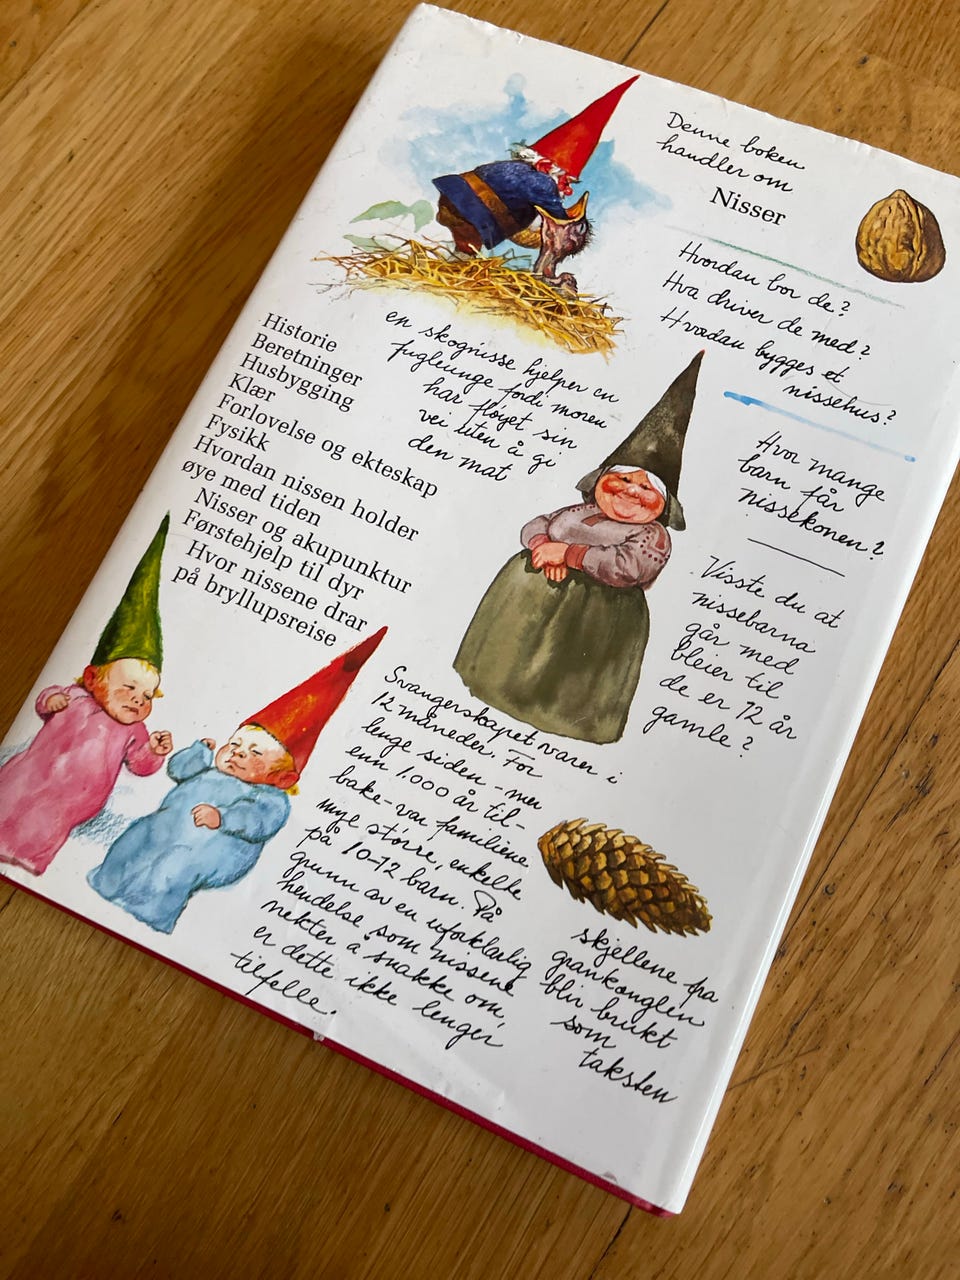 Denne boken
handler om
Nisser
Hvordan bor de?
Hva driver de med?
Hvordan bygges et
nissehus?
en skognisse hjelper en
fugleunge fordi moren
har fløyet sin
vei uten å gi
den mat
Historie
Beretninger
Husbygging
Klær
Forlovelse og ekteskap
Fysikk
Hvordan nissen holder
øye med tiden
Nisser og akupunktur
Førstehjelp til dyr
Hvor nissene drar
på bryllupsreise
Hvor mange
barn får
nissekonen?
Visste du at
nissebarna
går med
bleier til
de er 12 år
gamle?
Svangerskapet varer i
12 måneder. For
lenge siden - mer
enn 1.000 år til-
bake - var familiene
mye større, enkelte
på 10-12 barn. På
grunn av en uforklarlig
hendelse som nissene
nekter å snakke om,
er dette ikke lenger
tilfelle.
skjellene fra
grankonglen
blir brukt
som
taksten